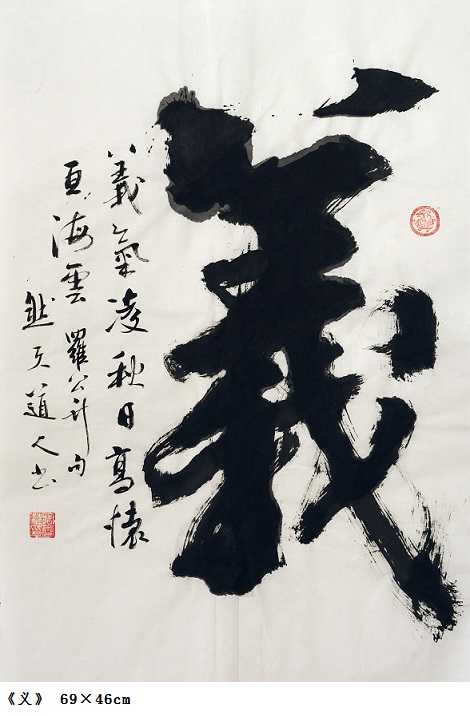 義
義氣凌秋日高懷
亘海雲 羅公升句
道人书
《义》 69×46cm